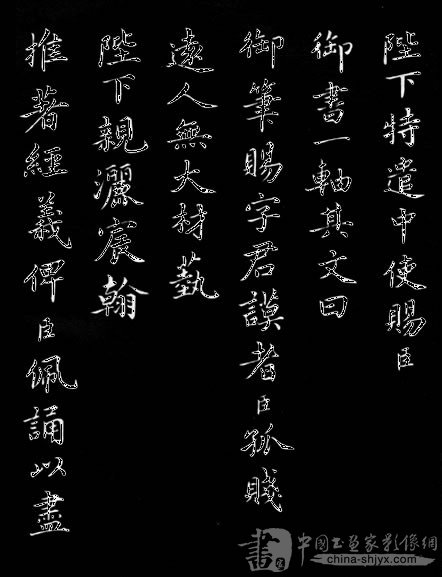 陛下特遣中使賜臣
御書一軸其文曰
御筆賜字君謨者臣孤賤
遠人無大材藝
陛下親灑宸翰
推著經義俾臣佩誦以盡
書 中國書畫家影像網
china-shjyx.com